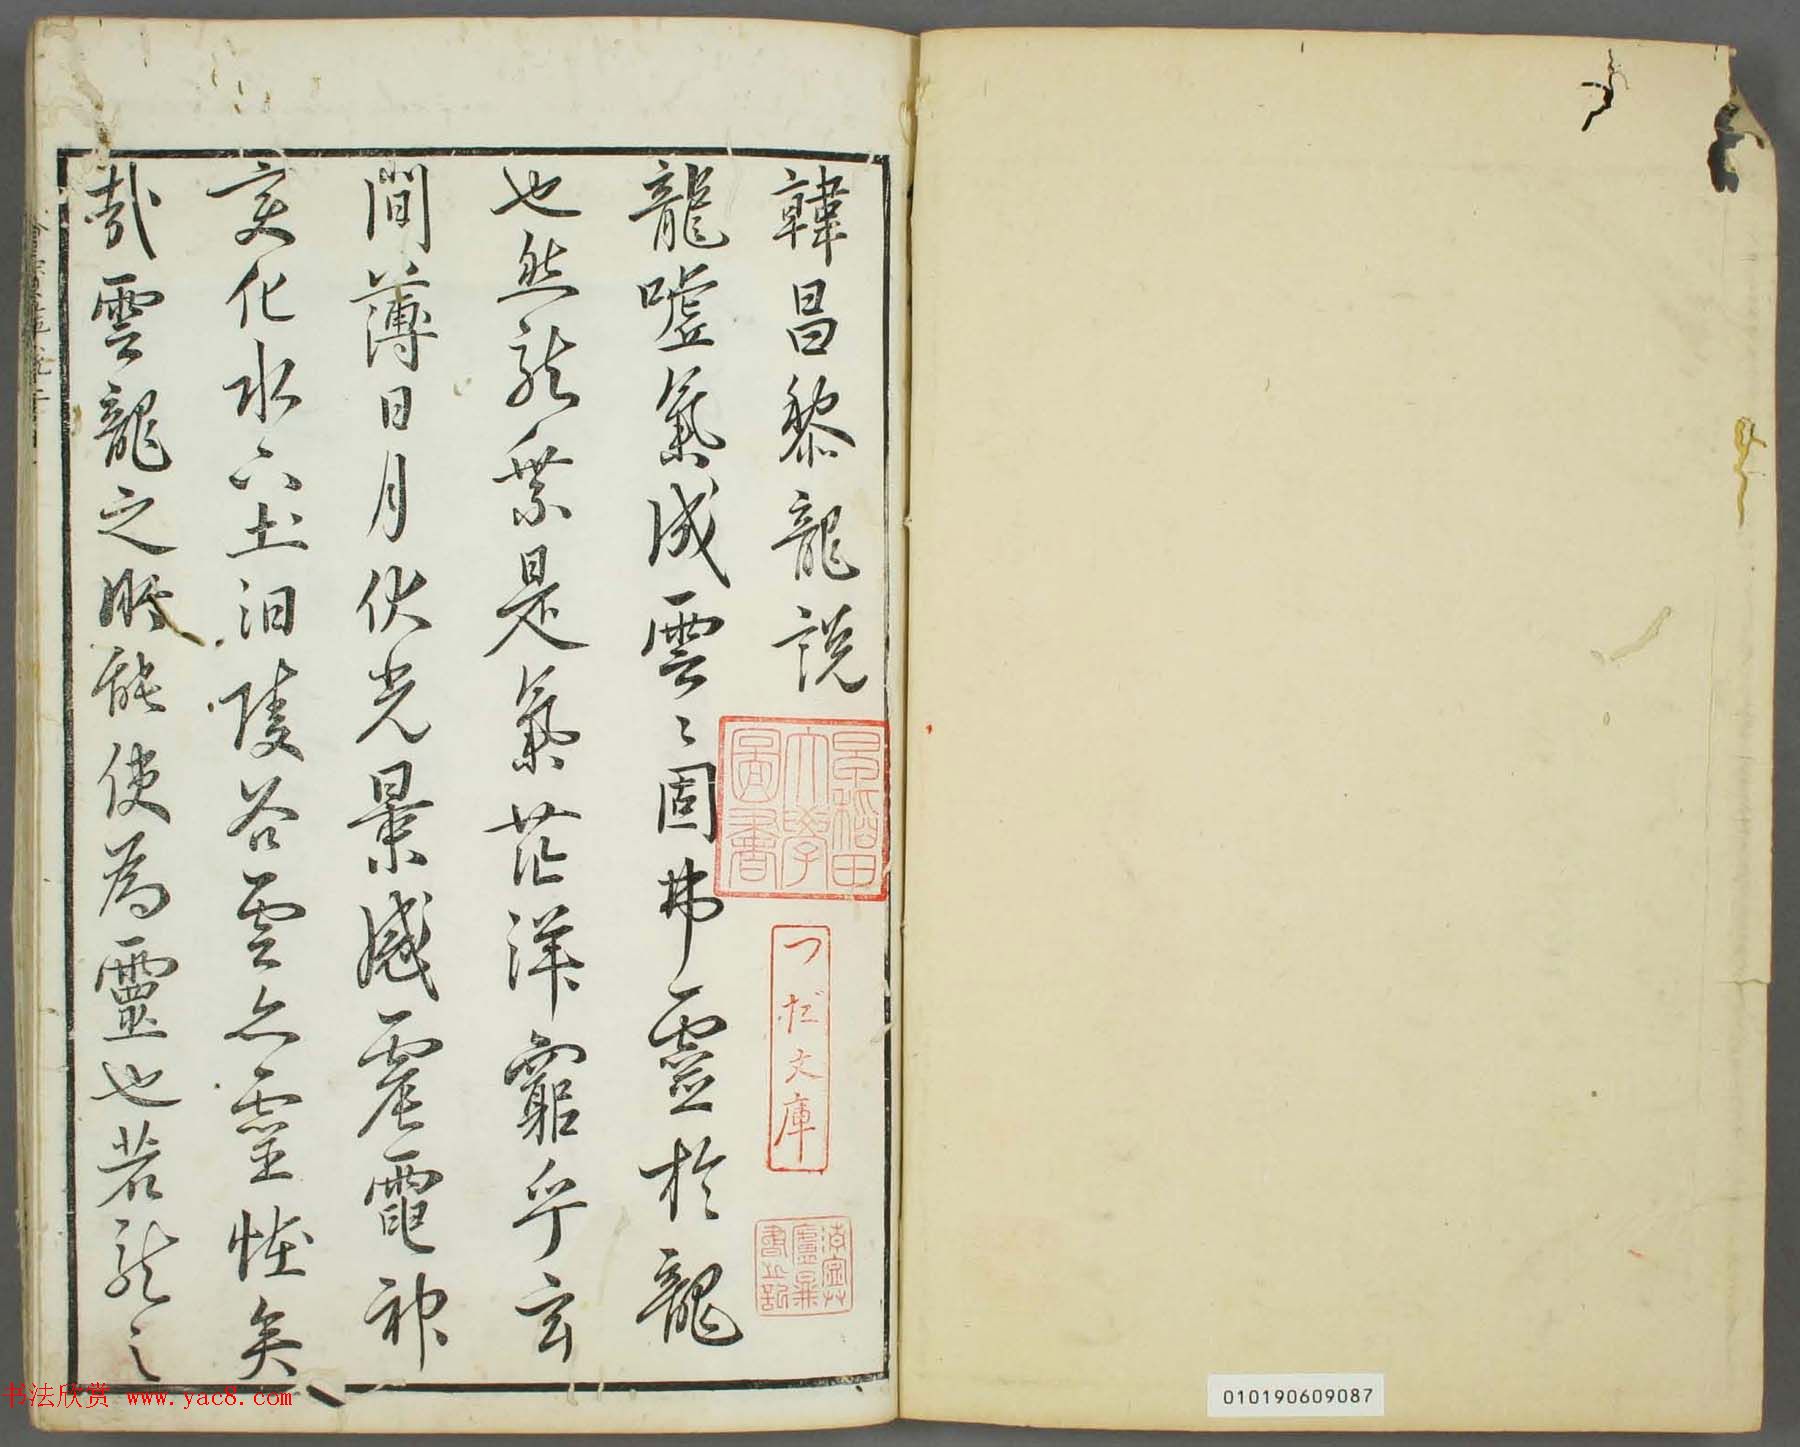 韓昌黎龍說
龍噓氣成雲〻固弗靈於龍
也然龍乘是氣茫洋窮乎玄
間薄日月伏光景感震電神
変化水下土汩陵谷雲亦靈怪矣
哉雲龍之所能使為靈也若龍之
早稻田
大學
圖書
つだ文庫
010190609087
书法欣赏 www.yac8.com